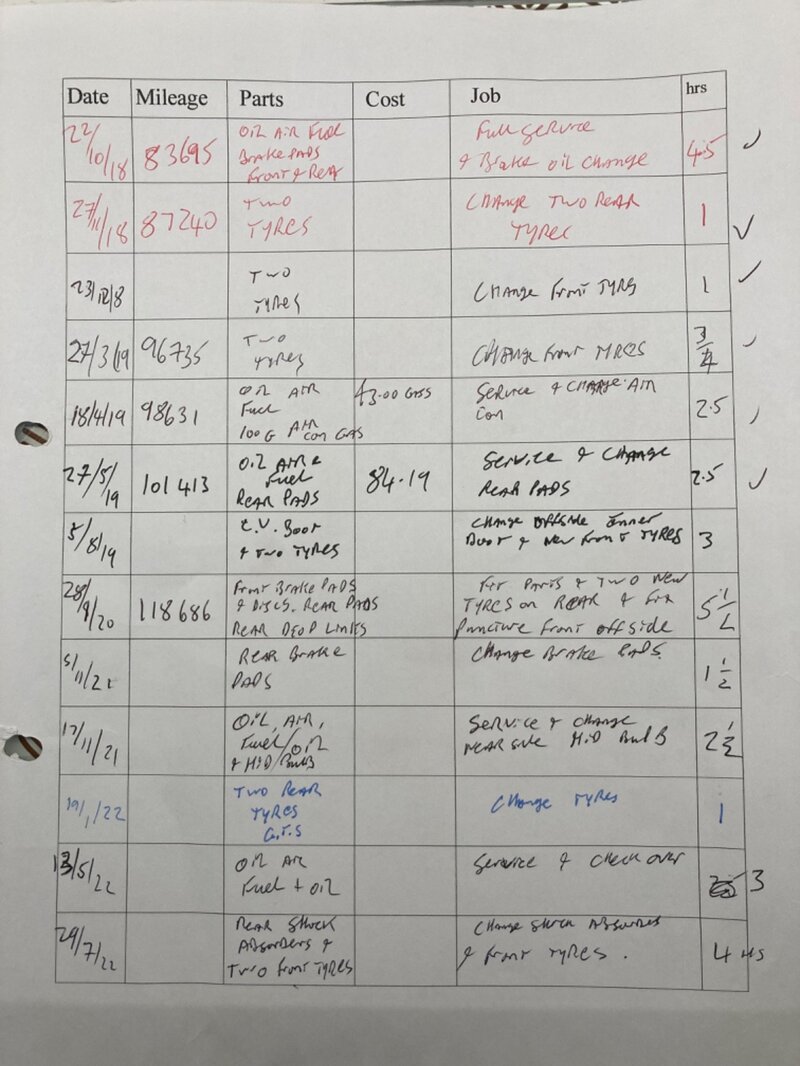 Date Mileage Parts Cost Job hrs
22/10/18 83695 OIL AIR FUEL BRAKE PADS FRONT & REAR Full Service & Brake oil CHANGE 4.5
27/11/18 87240 TWO TYRES CHANGE TWO REAR TYRES 1
23/12/8 TWO TYRES CHANGE FRONT TYRS 1
27/3/19 96735 TWO TYRES CHANGE FRONT TYRES 3/4
18/4/19 98631 OIL AIR Fuel 100G AIR CON GAS 43.00 GAS SERVICE & CHARGE AIR Con 2.5
27/5/19 101413 OIL AIR & Fuel REAR PADS 84.19 SERVICE & CHANGE REAR PADS 2.5
5/8/19 C.V. BOOT & TWO TYRES CHANGE OFFSIDE INNER BOOT & NEW FRONT TYRES 3
28/9/20 118686 FRONT BRAKE PADS & DISCS. REAR PADS REAR DROP LINKS FIT PARTS & TWO NEW TYRES on REAR & FIX PUNCTURE FRONT OFFSIDE 5 1/2
5/11/21 REAR BRAKE PADS CHANGE BRAKE PADS 1 1/2
17/11/21 OIL, AIR, Fuel/OIL & HID/BULB SERVICE & CHANGE NEARSIDE HID BULB 2 1/2
19/1/22 TWO REAR TYRES G.T.S CHANGE TYRES 1
13/5/22 OIL AIR Fuel + OIL SERVICE & CHECK OVER 3
29/7/22 REAR SHOCK ABSORBERS & TWO FRONT TYRES CHANGE SHOCK ABSORBES & FRONT TYRES. 4 HS